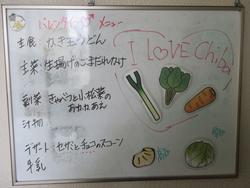 バレンタインメニュー
主食 かき玉うどん
主菜 生揚げのごまだれかけ
副菜 キャベツと小松菜の
おかかあえ
汁物
デザート ココアとチョコのスコーン
牛乳
I LOVE Chiba!